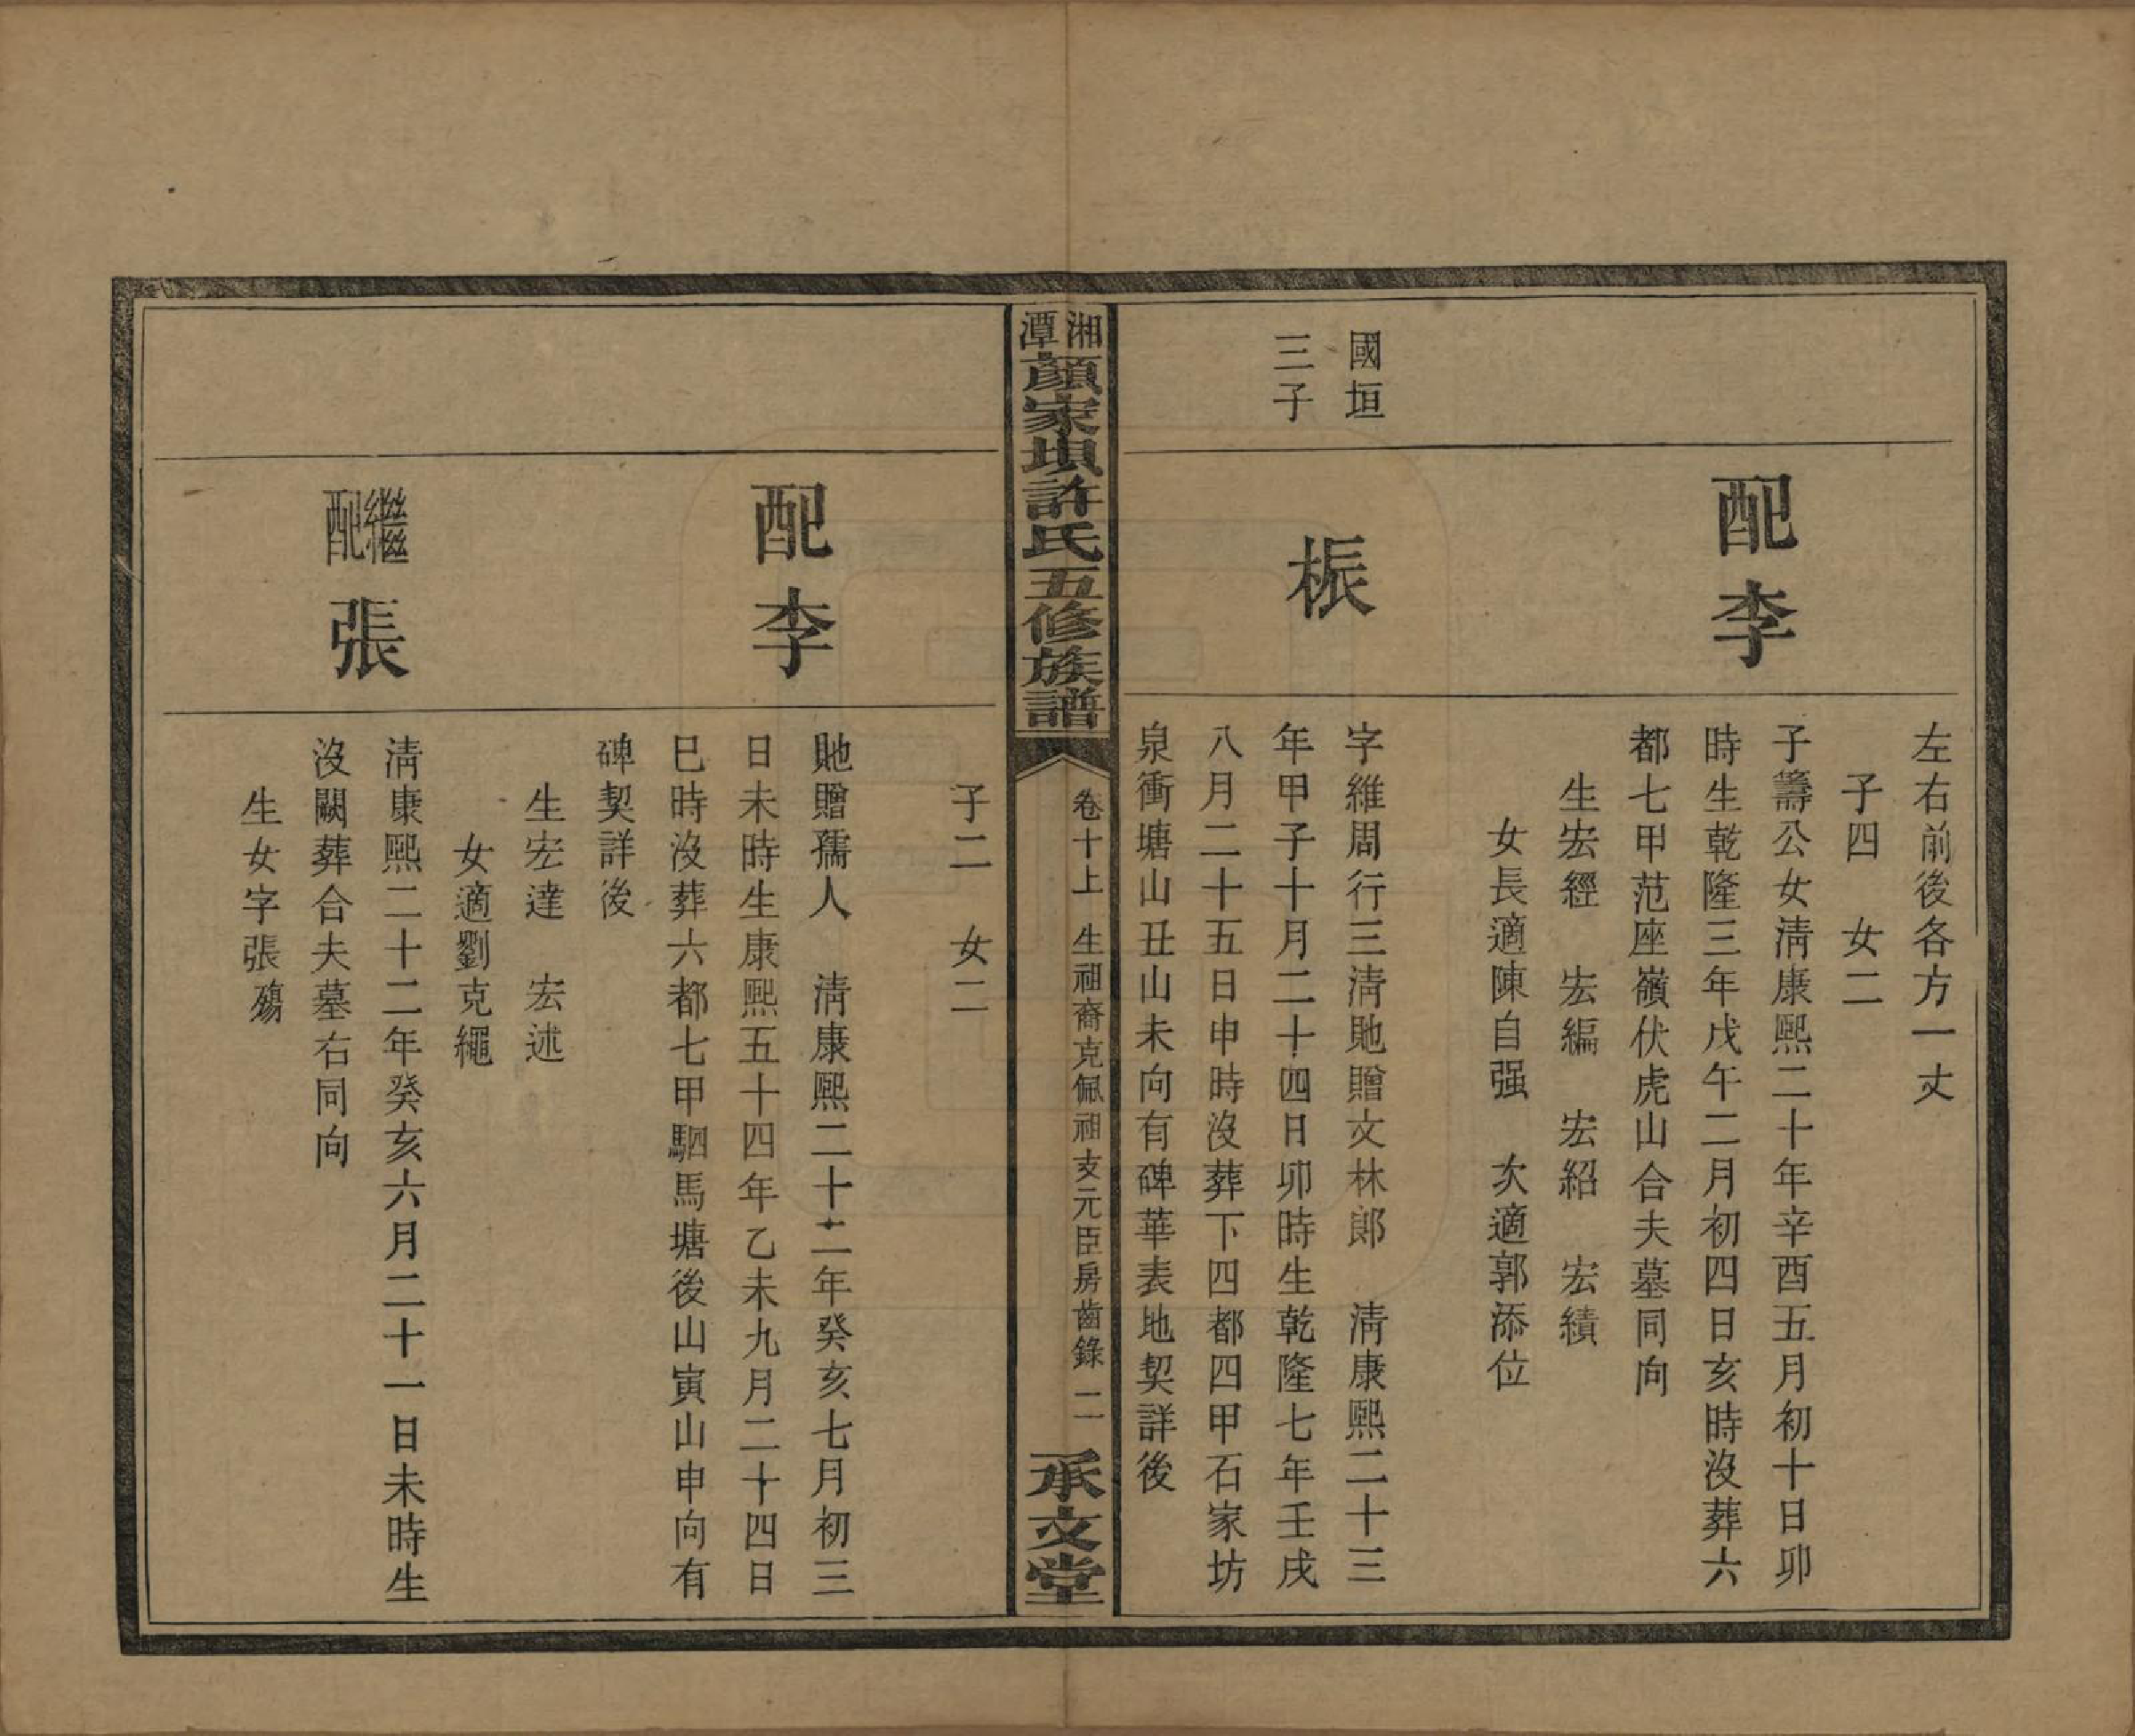 左右前後各方一丈
子四　女二
配李
子籌公女淸康熙二十年辛酉五月初十日卯
時生乾隆三年戊午二月初四日亥時沒葬六
都七甲范座嶺伏虎山合夫墓同向
生宏經　宏編　宏紹　宏績
女長適陳自强　次適郭添位
國垣
三子
桭
字維周行三淸貤贈文林郞　淸康熙二十三
年甲子十月二十四日卯時生乾隆七年壬戌
八月二十五日申時沒葬下四都四甲石家坊
泉衝塘山丑山未向有碑華表地契詳後
湘潭顏家垻許氏五修族譜
卷十上　生祖裔克佩祖支元臣房齒錄　二
承文堂
子二　女二
配李
貤贈孺人　淸康熙二十二年癸亥七月初三
日未時生康熙五十四年乙未九月二十四日
巳時沒葬六都七甲駟馬塘後山寅山申向有
碑契詳後
生宏達　宏述
女適劉克繩
繼配張
淸康熙二十二年癸亥六月二十一日未時生
沒闕葬合夫墓右同向
生女字張殤